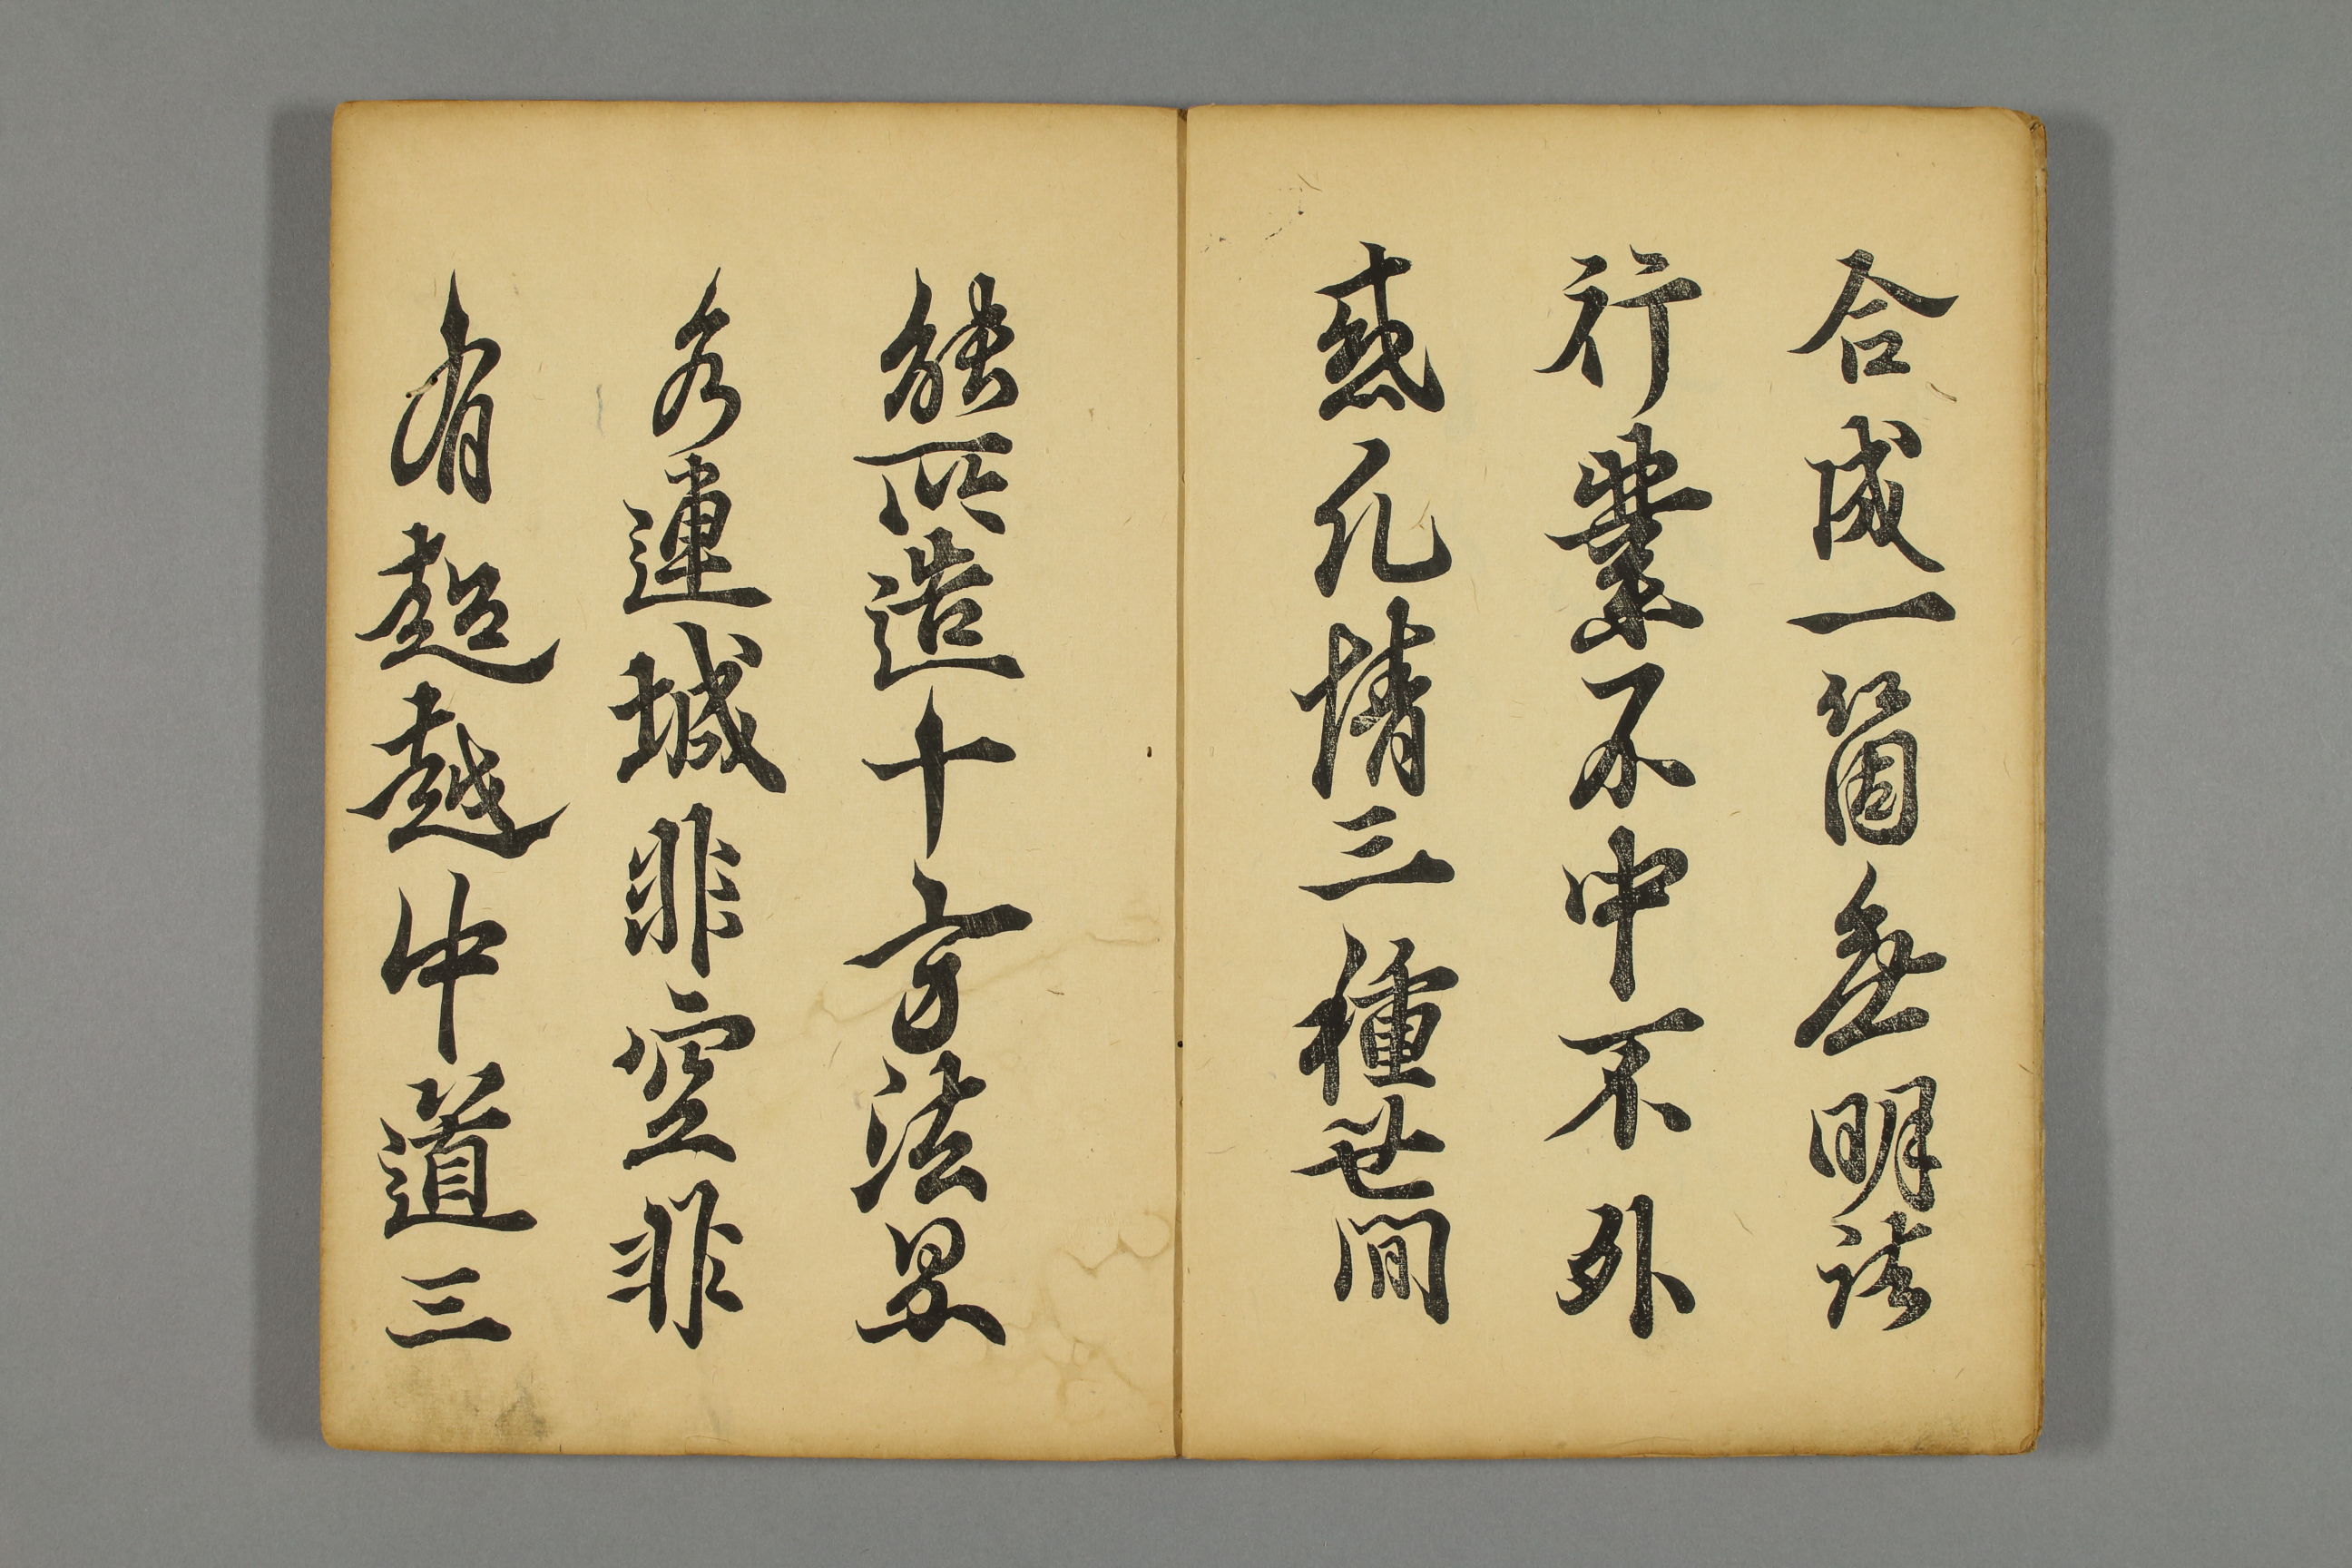 合成一箇無明諸
行業不中不外
惑凡情三種世間
能所造十方法界
各連城非空非
有超越中道三